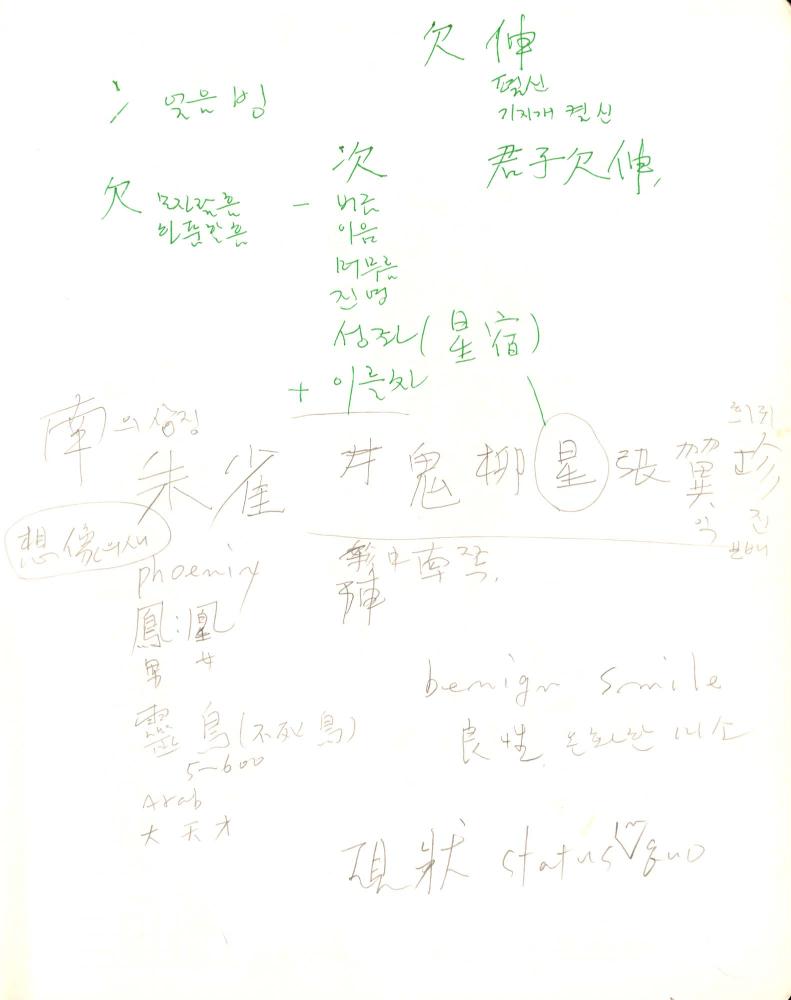 欠 伸
펼신
기지개 켤신
冫 얼음 빙
君子欠伸,
欠 모자랄흠
하품할흠
- 次
버금
이음
머무름
진영
성좌(星宿)
+ 이를차
南의 상징
朱雀
井鬼柳星張翼珍
희귀
익
진
보배
想像의새
phoenix
鳳:凰
男 女
靈鳥(不死鳥)
5~600
Arab
大天才
陣中
benign smile
良性, 온화한 미소
現狀 status quo